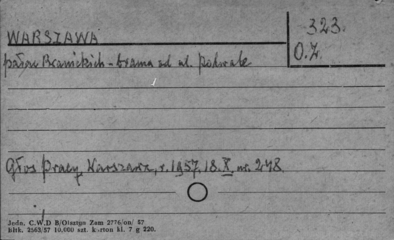 WARSZAWA
323.
O.Z.
pałac Branickich - brama od ul. Podwale
Głos Pracy, Warszawa, r. 1957, 18.X, nr. 248
Jedn. C.W.D B/Olsztyn Zam 2776/on/ 57
Bltk. 2562/57 10.000 szt. karton kl. 7 g 220.